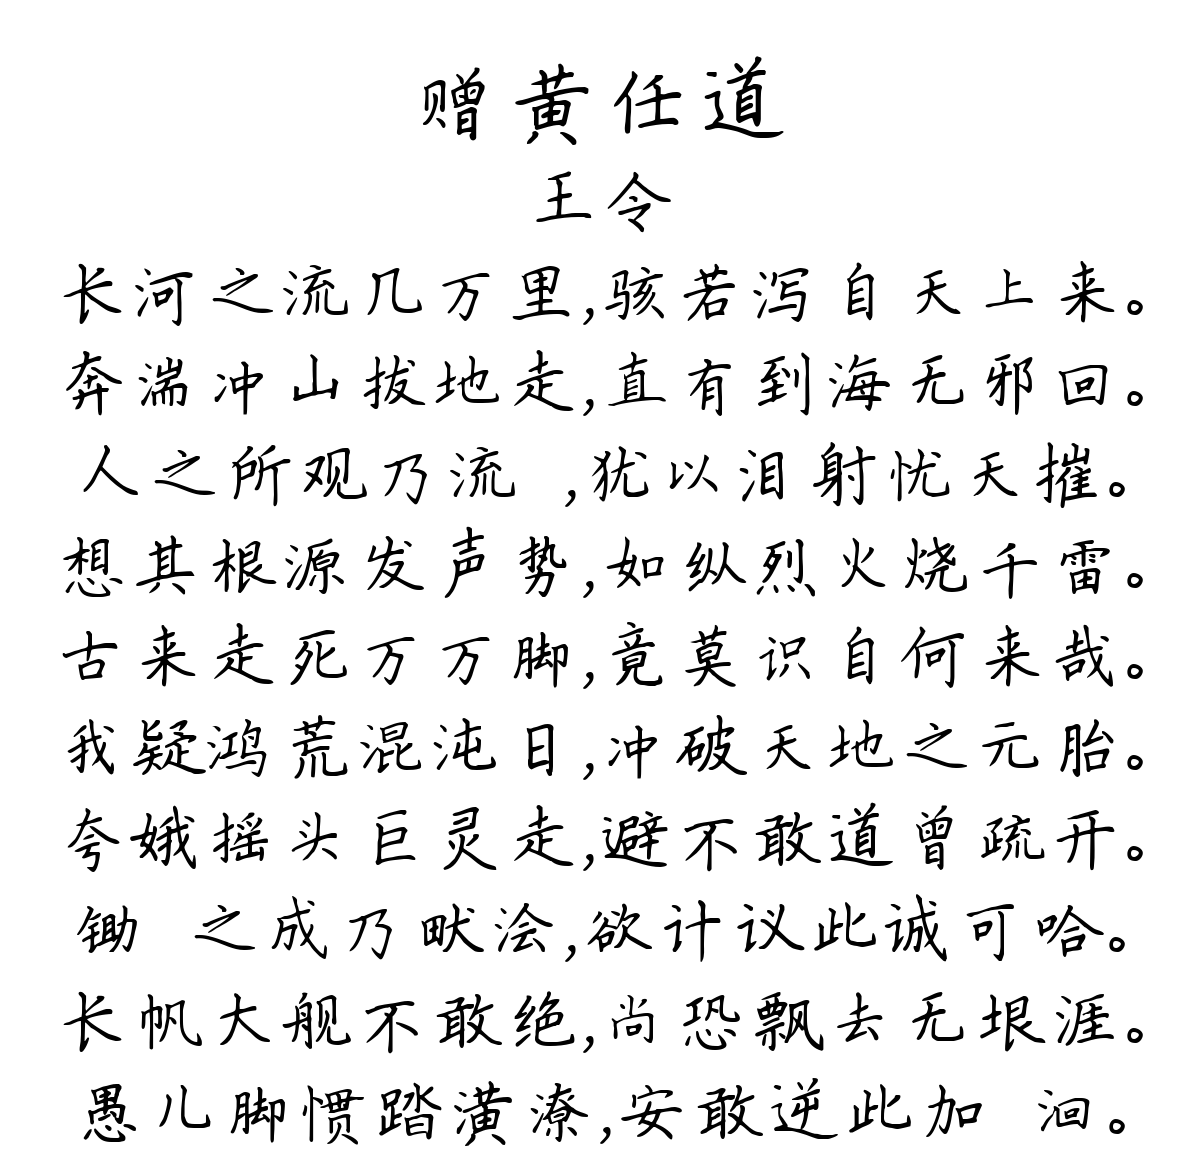 赠黄任道
王令
长河之流几万里,骇若泻自天上来。
奔湍冲山拔地走,直有到海无邪回。
人之所观乃流 ,犹以泪射忧天摧。
想其根源发声势,如纵烈火烧千雷。
古来走死万万脚,竟莫识自何来哉。
我疑鸿荒混沌日,冲破天地之元胎。
夸娥摇头巨灵走,避不敢道曾疏开。
锄 之成乃畎浍,欲计议此诚可哈。
长帆大舰不敢绝,尚恐飘去无垠涯。
愚儿脚惯踏潢潦,安敢逆此加 洄。